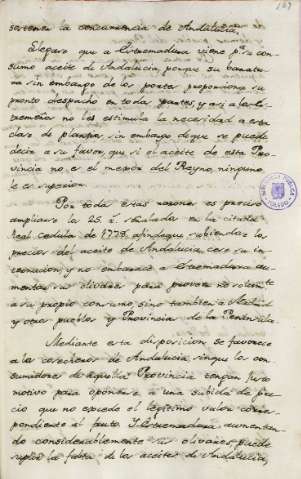 sostener la concurrencia de Andalucia,
Es claro que a Extremadura viene pª su con
sumo aceite de Andalucia, porque su baratu
ra sin embargo de los portes proporciona su
pronto despacho en todas partes, y asi a los Ex
tremeños no les estimula la necesidad a esta
clase de plantio, sin embargo de que se puede
decir a su favor, que si el aceite de esta Pro
vincia no es el mejor del Reyno, ninguno
le es superior.
Por todas estas razones es preciso
ampliarse la 25 señalada en la citada
Real cedula de 1773, afin de que subiendo los
precios del aceite de Andalucia cese su in
troduccion y no embarace a Extremadura au
mentar sus olivares para proveer no solamte
a su propio consumo, sino tambien a Madrid
y otros pueblos y Provincias de la Peninsula.
Mediante esta disposicion se favorece
a los cosecheros de Andalucia, sin que los con
sumidores de aquella Provincia tengan justo
motivo para oponerse a una subida de pre
cio que no excede el legitimo valor corres
pondiente al fruto. I Extremadura aumentan
do considerablemente sus olivares, puede
suplir la falta de los aceites de Andalucia,